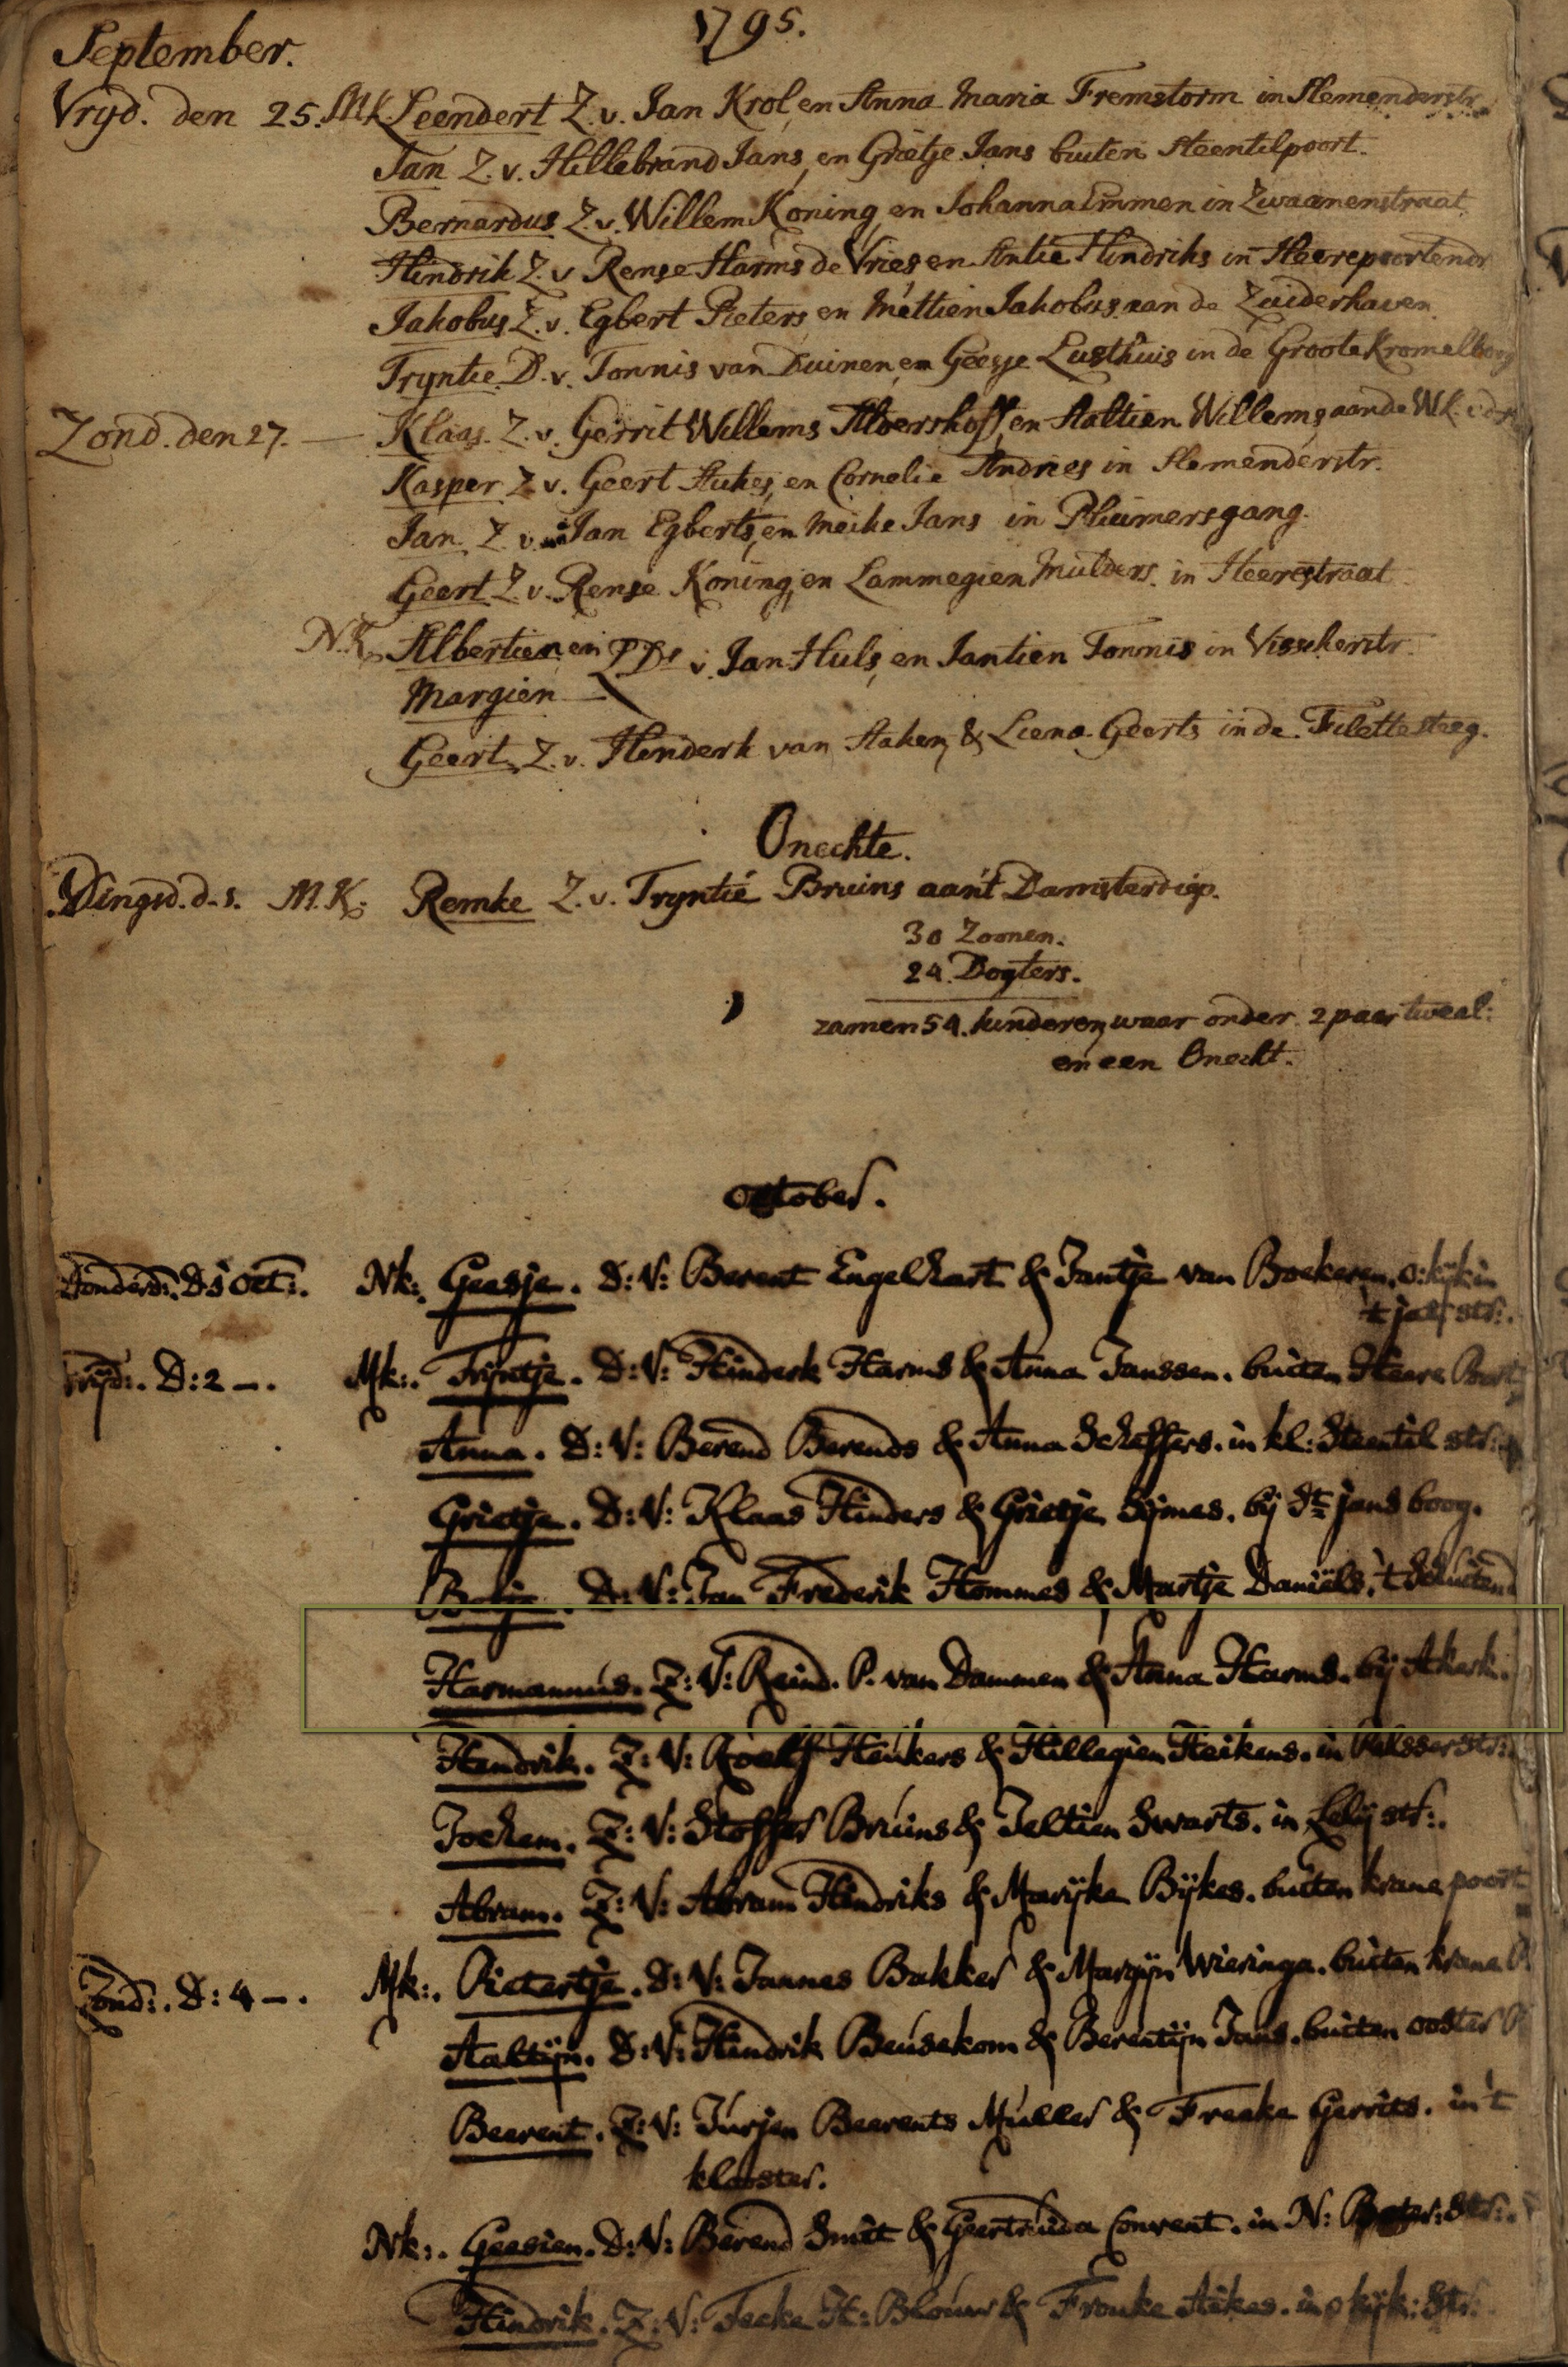 1795.
September.
Vryd. den 25. M.K. Leendert Z. v. Jan Krol, en Anna Maria Fremstorm in Slemenderstr.
Jan Z. v. Hillebrand Jans, en Grietje Jans buiten Steentilpoort.
Bernardus Z. v. Willem Koning, en Johanna Emmen in Zwaanenstraat.
Hindrik Z. v. Rense Harms de Vries en Antie Hindriks in Heerepoorten
Jakobus Z. v. Egbert Pieters, en Mettien Jakobus aan de Zuiderhaven.
Tryntie D. v. Tonnis van Duinen, en Geesje Lusthuis in de Groote Kromelboog
Zond. den 27. — Klaas Z. v. Gerrit Willems Alvershoff, en Aaltien Willems aan de W.K.
Kasper Z. v. Geert Aukes, en Cornelie Andries in Slemenderstr.
Jan Z. v. Jan Egberts, en Meike Jans in Pluimersgang.
Geert Z. v. Rense Koning, en Lammegien Mulders in Heerestraat.
N.K. Albertien en 2 Ds v. Jan Huls, en Jantien Tonnis in Visscherstr.
Margien
Geert Z. v. Henderk van Aaken, & Liena Geerts in de Filettesteeg.
Onechte.
Dingsd. d. 1. M.K. Remke Z. v. Tryntie Bruins aan't Damsterdiep.
30 Zoonen.
24. Dogters.
zamen 54. kinderen, waar onder 2 paar tweel:
en een Onecht.
october.
Donderd:. D 1 Oct:. Nk:. Geesje. D: V: Berent Engelhart & Jantje van Boekeren. o: kijk in
't jat str:.
Vrijd:. D: 2 —. Mk:. Trijntje. D: V: Hinderk Harms & Anna Janssen. buiten Heere Poort
Anna. D: V: Berend Berends & Anna Scheffers. in kl: Steentil str:
Grietje. D: V: Klaas Hinders & Grietje Sijmes. bij St jans boog.
D: V: Jan Frederik Hommes & Martje Daniëls.
Harmannus. Z: V: Reind. P. van Dammen & Anna Harms. bij Akerk.
Hendrik. Z: V: Roelf Heukers & Hillegien Heikens. in Pelsser Str:
Jochem. Z: V: Stoffer Bruins & Jeltien Swarts. in Lelij str:.
Abram. Z: V: Abram Hindriks & Marijke Bijkes. buiten krane poort
Zond:. D: 4 —. Mk:. Pietertje. D: V: Jannes Bakker & Margijn Wieringa. buiten krane P
Aaltijn. D: V: Hindrik Beusekom & Berentijn Jans. buiten ooster P
Beerent. Z: V: Jurjen Beerents Muller & Freeke Gerrits. in 't
klooster.
Nk:. Geesien. D: V: Berend Smit & Geertruida Convent. in N: Str:.
Hindrik. Z: V: Feeke H: Blouw & Frouke Aikes. in o kijk: Str: